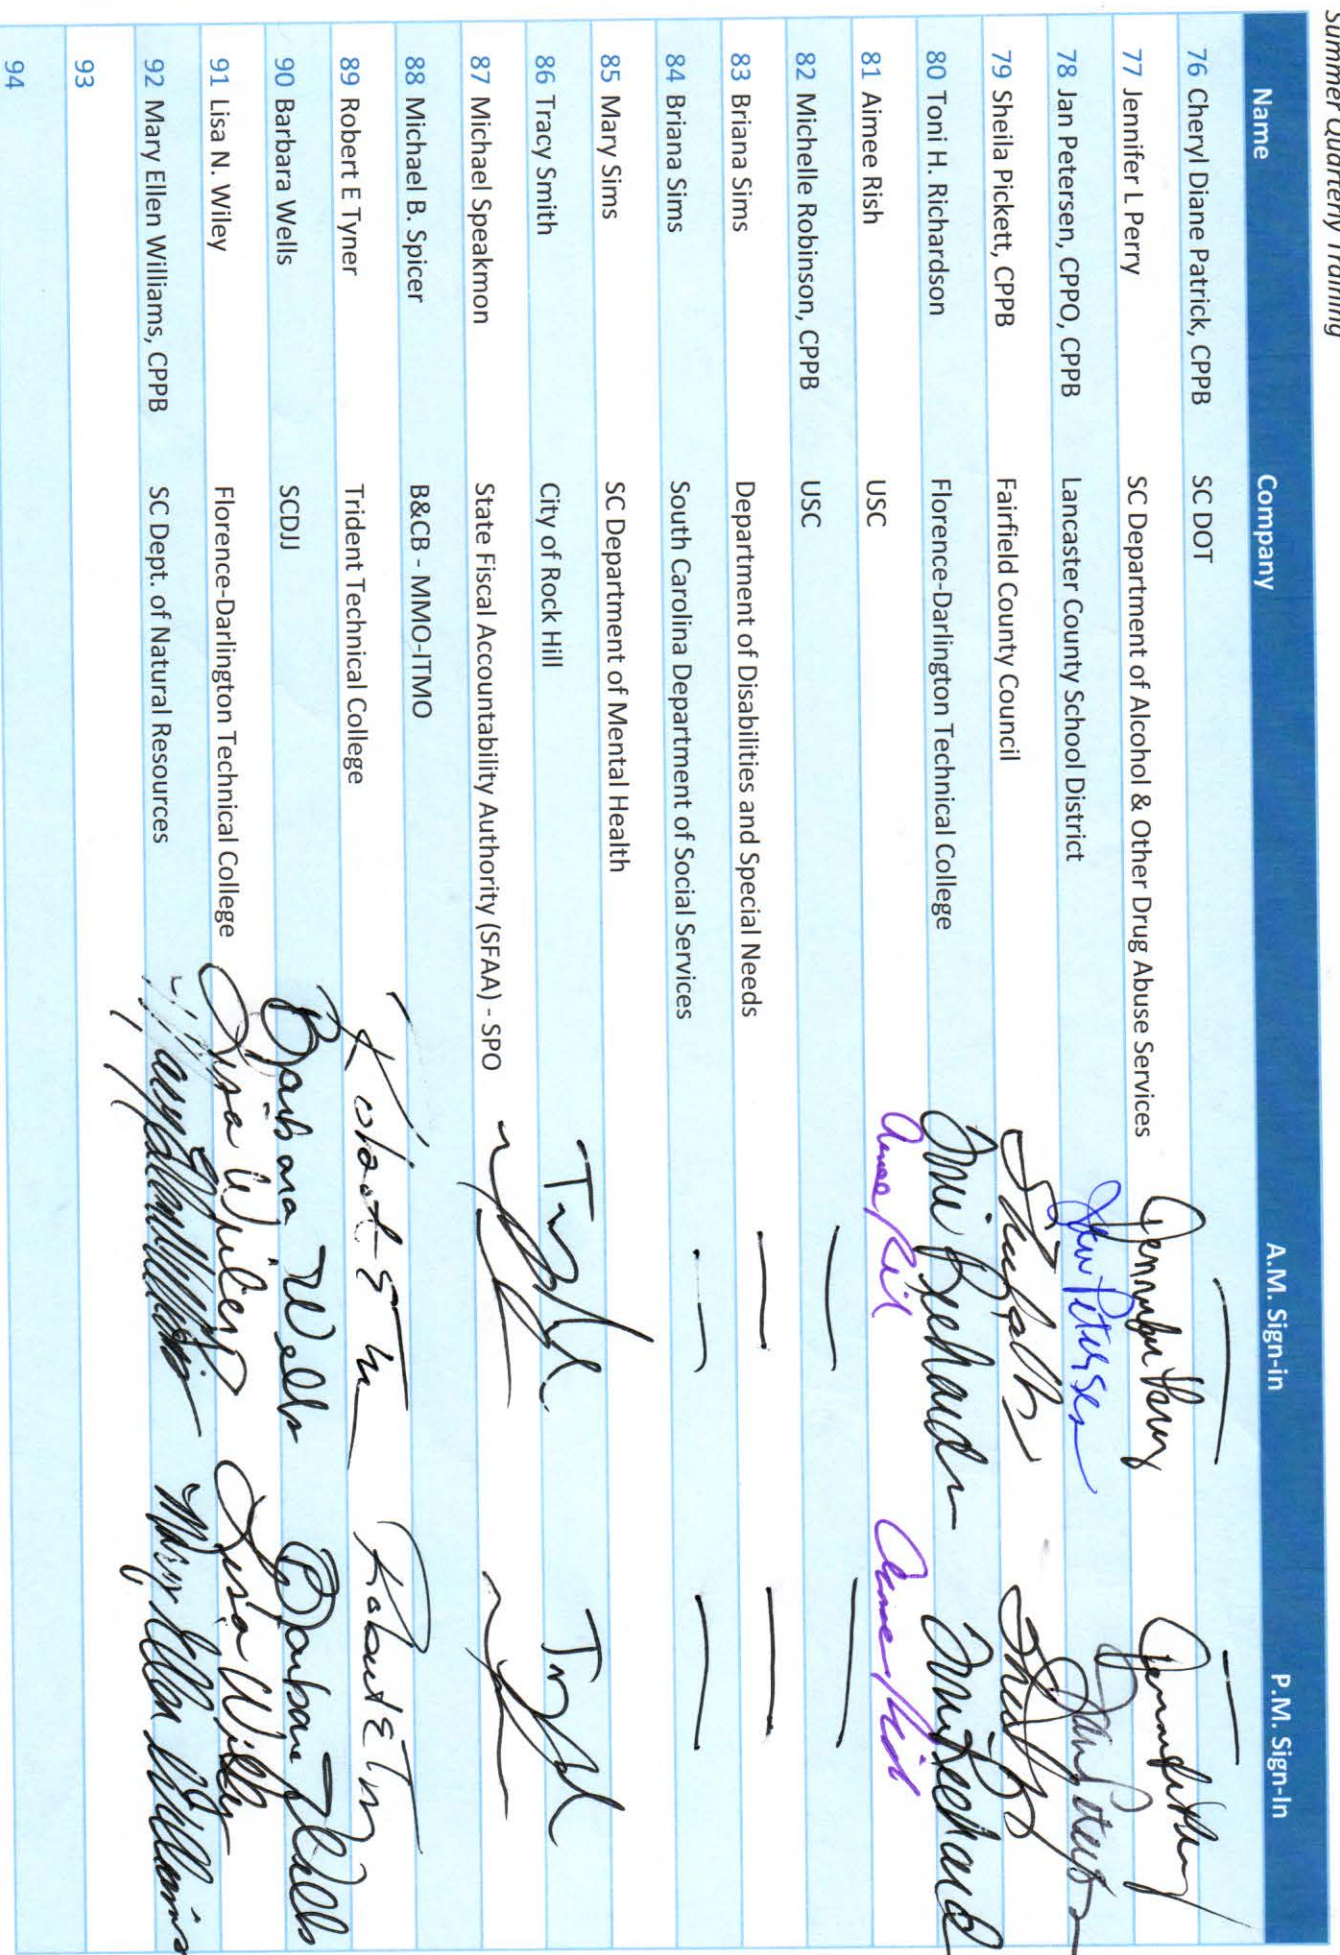 Summer Quarterly Training
Name Company A.M. Sign-in P.M. Sign-In
76 Cheryl Diane Patrick, CPPB SC DOT — —
77 Jennifer L Perry SC Department of Alcohol & Other Drug Abuse Services Jennifer Perry Jennifer Perry
78 Jan Petersen, CPPO, CPPB Lancaster County School District Jan Petersen Jan Petersen
79 Sheila Pickett, CPPB Fairfield County Council
80 Toni H. Richardson Florence-Darlington Technical College Toni Richardson Toni Richard
81 Aimee Rish USC Aimee Rish Aimee Rish
82 Michelle Robinson, CPPB USC — —
83 Briana Sims Department of Disabilities and Special Needs — —
84 Briana Sims South Carolina Department of Social Services — —
85 Mary Sims SC Department of Mental Health
86 Tracy Smith City of Rock Hill
87 Michael Speakmon State Fiscal Accountability Authority (SFAA) - SPO
88 Michael B. Spicer B&CB - MMO-ITMO
89 Robert E Tyner Trident Technical College Robert E Robert E
90 Barbara Wells SCDJJ Barbara Wells Barbara Wells
91 Lisa N. Wiley Florence-Darlington Technical College Lisa Wiley Lisa Wiley
92 Mary Ellen Williams, CPPB SC Dept. of Natural Resources Mary Ellen Williams Mary Ellen Williams
93
94